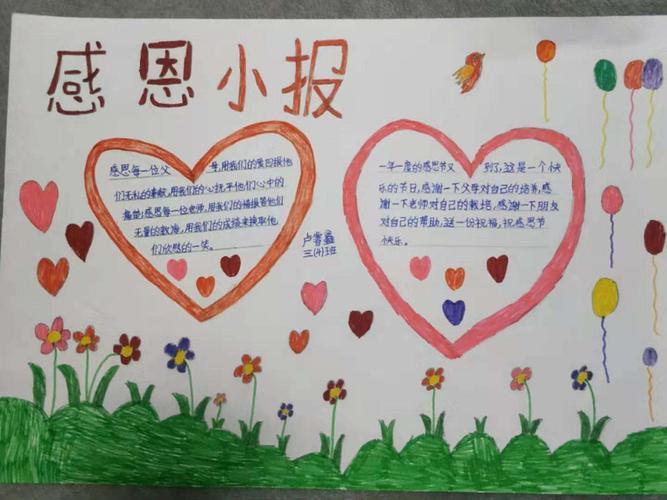 感恩小报
感恩每一位父 母,用我们的爱回报他
们无私的奉献,用我们的心抚平他们心中的
创伤;感恩每一位老师,用我们的
无量的教诲,用我们的成绩来换取他
们欣慰的一笑。
卢睿
三(4)班
一年一度的感恩节又 到了,这是一个快
乐的节日,感谢一下父母对自己的培养,感
谢一下老师对自己的教培,感谢一下朋友
对自己的帮助,送一份祝福,祝感恩节
快乐。